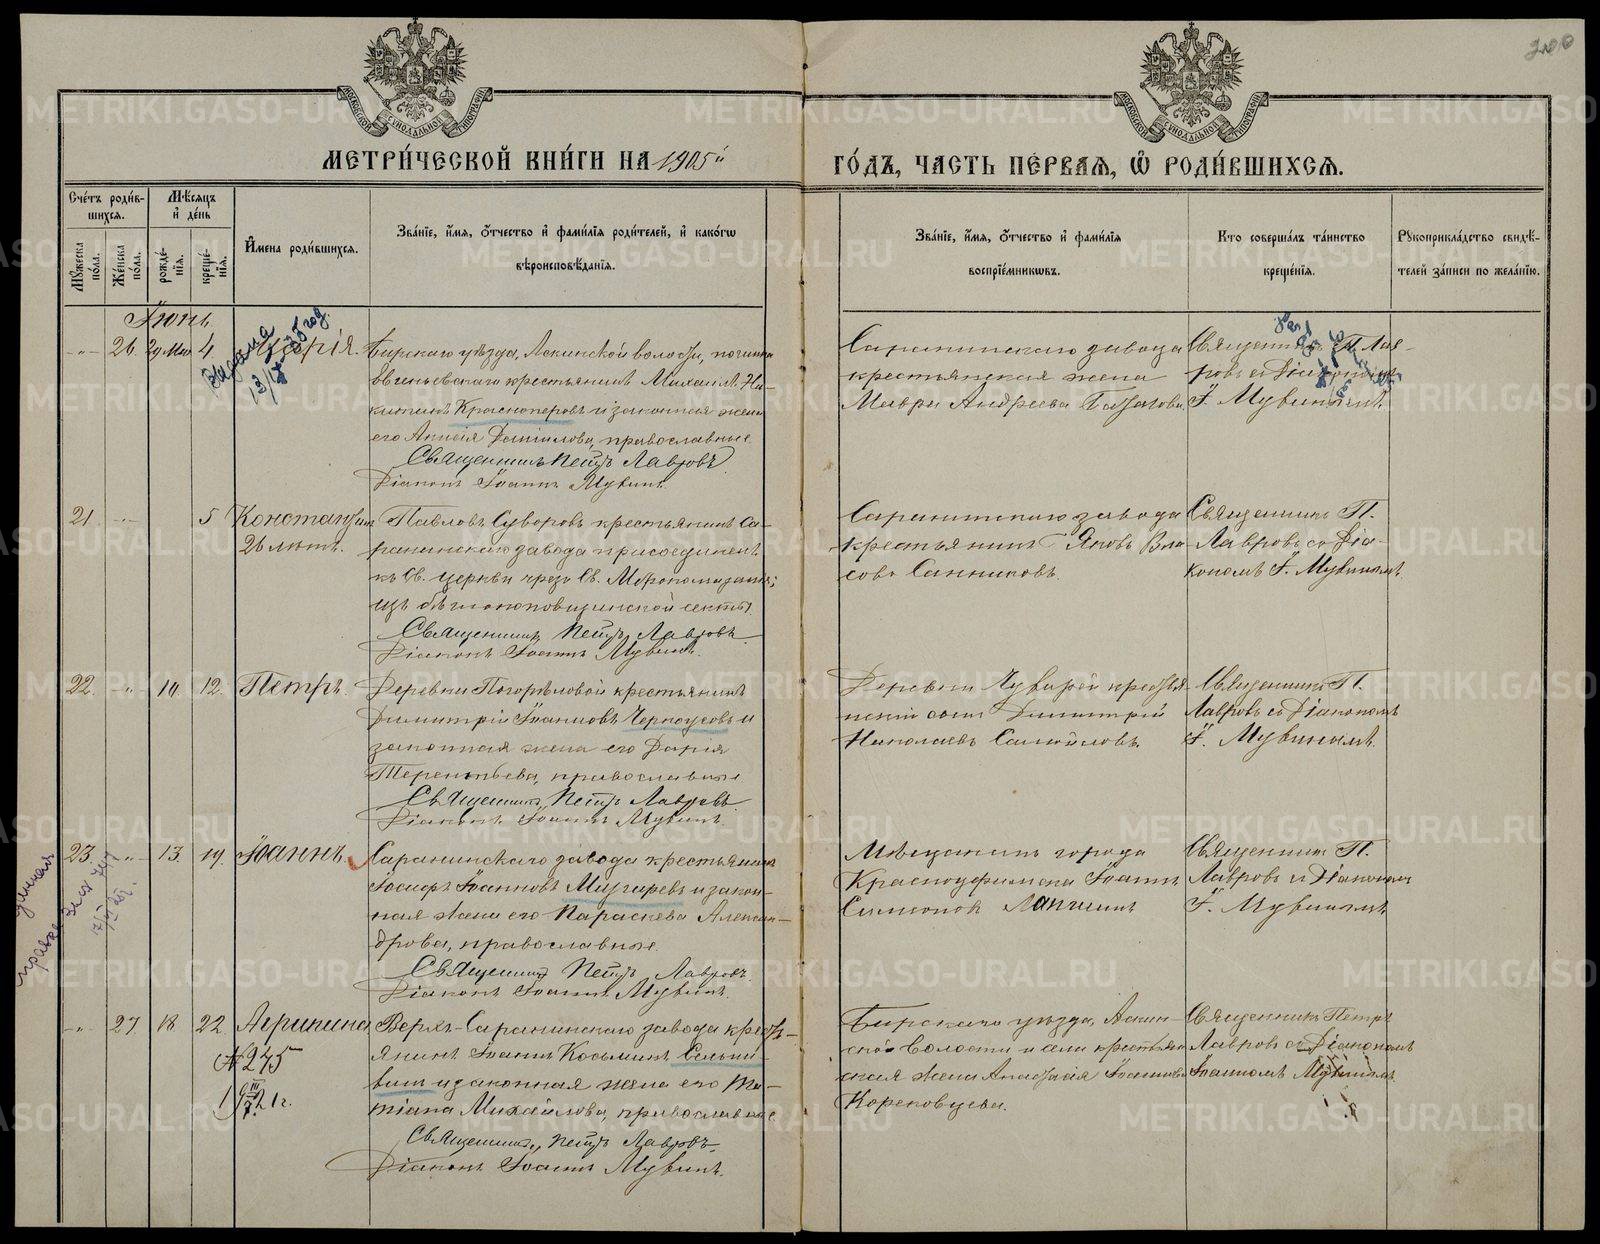 МЕТРИ́ЧЕСКОЙ КНИ́ГИ НА 1905й
ГО́ДЪ, ЧАСТЬ ПЕ́РВАЯ, Ѽ РОДИ́ВШИХСѦ.
Сче́тъ роди́в-
шихся.
Мѣ́сяцъ
и́ де́нь
Мꙋжеска по́ла.
Же́нска по́ла.
рожде́-
нія.
креще́-
нія.
И҆мена роди́вшихся.
Зва́ніе, и́мя, о́тчество и́ фами́лія роди́телей, и́ како́гѡ
вѣроисповѣ́данія.
Зва́ніе, и́мя, о́тчество и́ фами́лія
воспріе́мниковъ.
Кто соверша́лъ та́инство
креще́нія.
Рꙋкоприкла́дство свидѣ́-
телей за́писи по жела́нію.
Іюнь.
-"- 26. 29 Мая 4.
Бирскаго уѣзда, Аскинской волости, починка
крестьянинъ Михаилъ Ни-
китинъ Красноперовъ и законная жена
его Анисія Даниілова, православные
Священникъ Петръ Лавровъ
Діаконъ Іоаннъ Мувинъ.
Саранинскаго завода
крестьянская жена
Мавра Андреева
Священникъ П. Лав-
ровъ съ Діакономъ
І. Мувинымъ.
21. -"- 5 Константинъ
26 лѣтъ.
Павловъ Суворовъ крестьянинъ Са-
ранинскаго завода присоединенъ
къ Св. церкви чрезъ Св. Мѵропомазаніе
изъ бѣглопоповщинской секты.
Священникъ Петръ Лавровъ
Діаконъ Іоаннъ Мувинъ.
Саранинскаго завода
крестьянинъ Яковъ Вла-
совъ Санниковъ.
Священникъ П.
Лавровъ съ Діа-
кономъ І. Мувинымъ.
22. -"- 10. 12. Петръ.
Деревни Погорѣловой крестьянинъ
Димитрій Іоанновъ Черноусовъ и
законная жена его Дарія
Терентьева, православные
Священникъ Петръ Лавровъ
Діаконъ Іоаннъ Мувинъ.
Деревни Чувирей крестья-
нскій сынъ Димитрій
Николаевъ Самойловъ.
Священникъ П.
Лавровъ съ Діакономъ
І. Мувинымъ.
23. -"- 13. 19. Іоаннъ.
Саранинскаго завода крестьянинъ
Іосифъ Іоанновъ Мизгиревъ и закон-
ная жена его Параскева Алексан-
дрова, православные.
Священникъ Петръ Лавровъ
Діаконъ Іоаннъ Мувинъ.
Мѣщанинъ города
Красноуфимска Іоаннъ
Симоновъ
Священникъ П.
Лавровъ съ Діакономъ
І. Мувинымъ
-"- 27. 18 22. Агрипина
№ 245
Верхъ-Саранинскаго завода кресть-
янинъ Іоаннъ Косьминъ Сельни-
и законная жена его Та-
тіана Михайлова, православные
Священникъ Петръ Лавровъ
Діаконъ Іоаннъ Мувинъ.
Бирскаго уѣзда, Аскин-
ской волости и села крестьян-
ская жена Анастасія Іоаннова
Кореновцева.
Священникъ Петръ
Лавровъ съ Діакономъ
Іоанномъ Мувинымъ.
METRIKI.GASO-URAL.RU